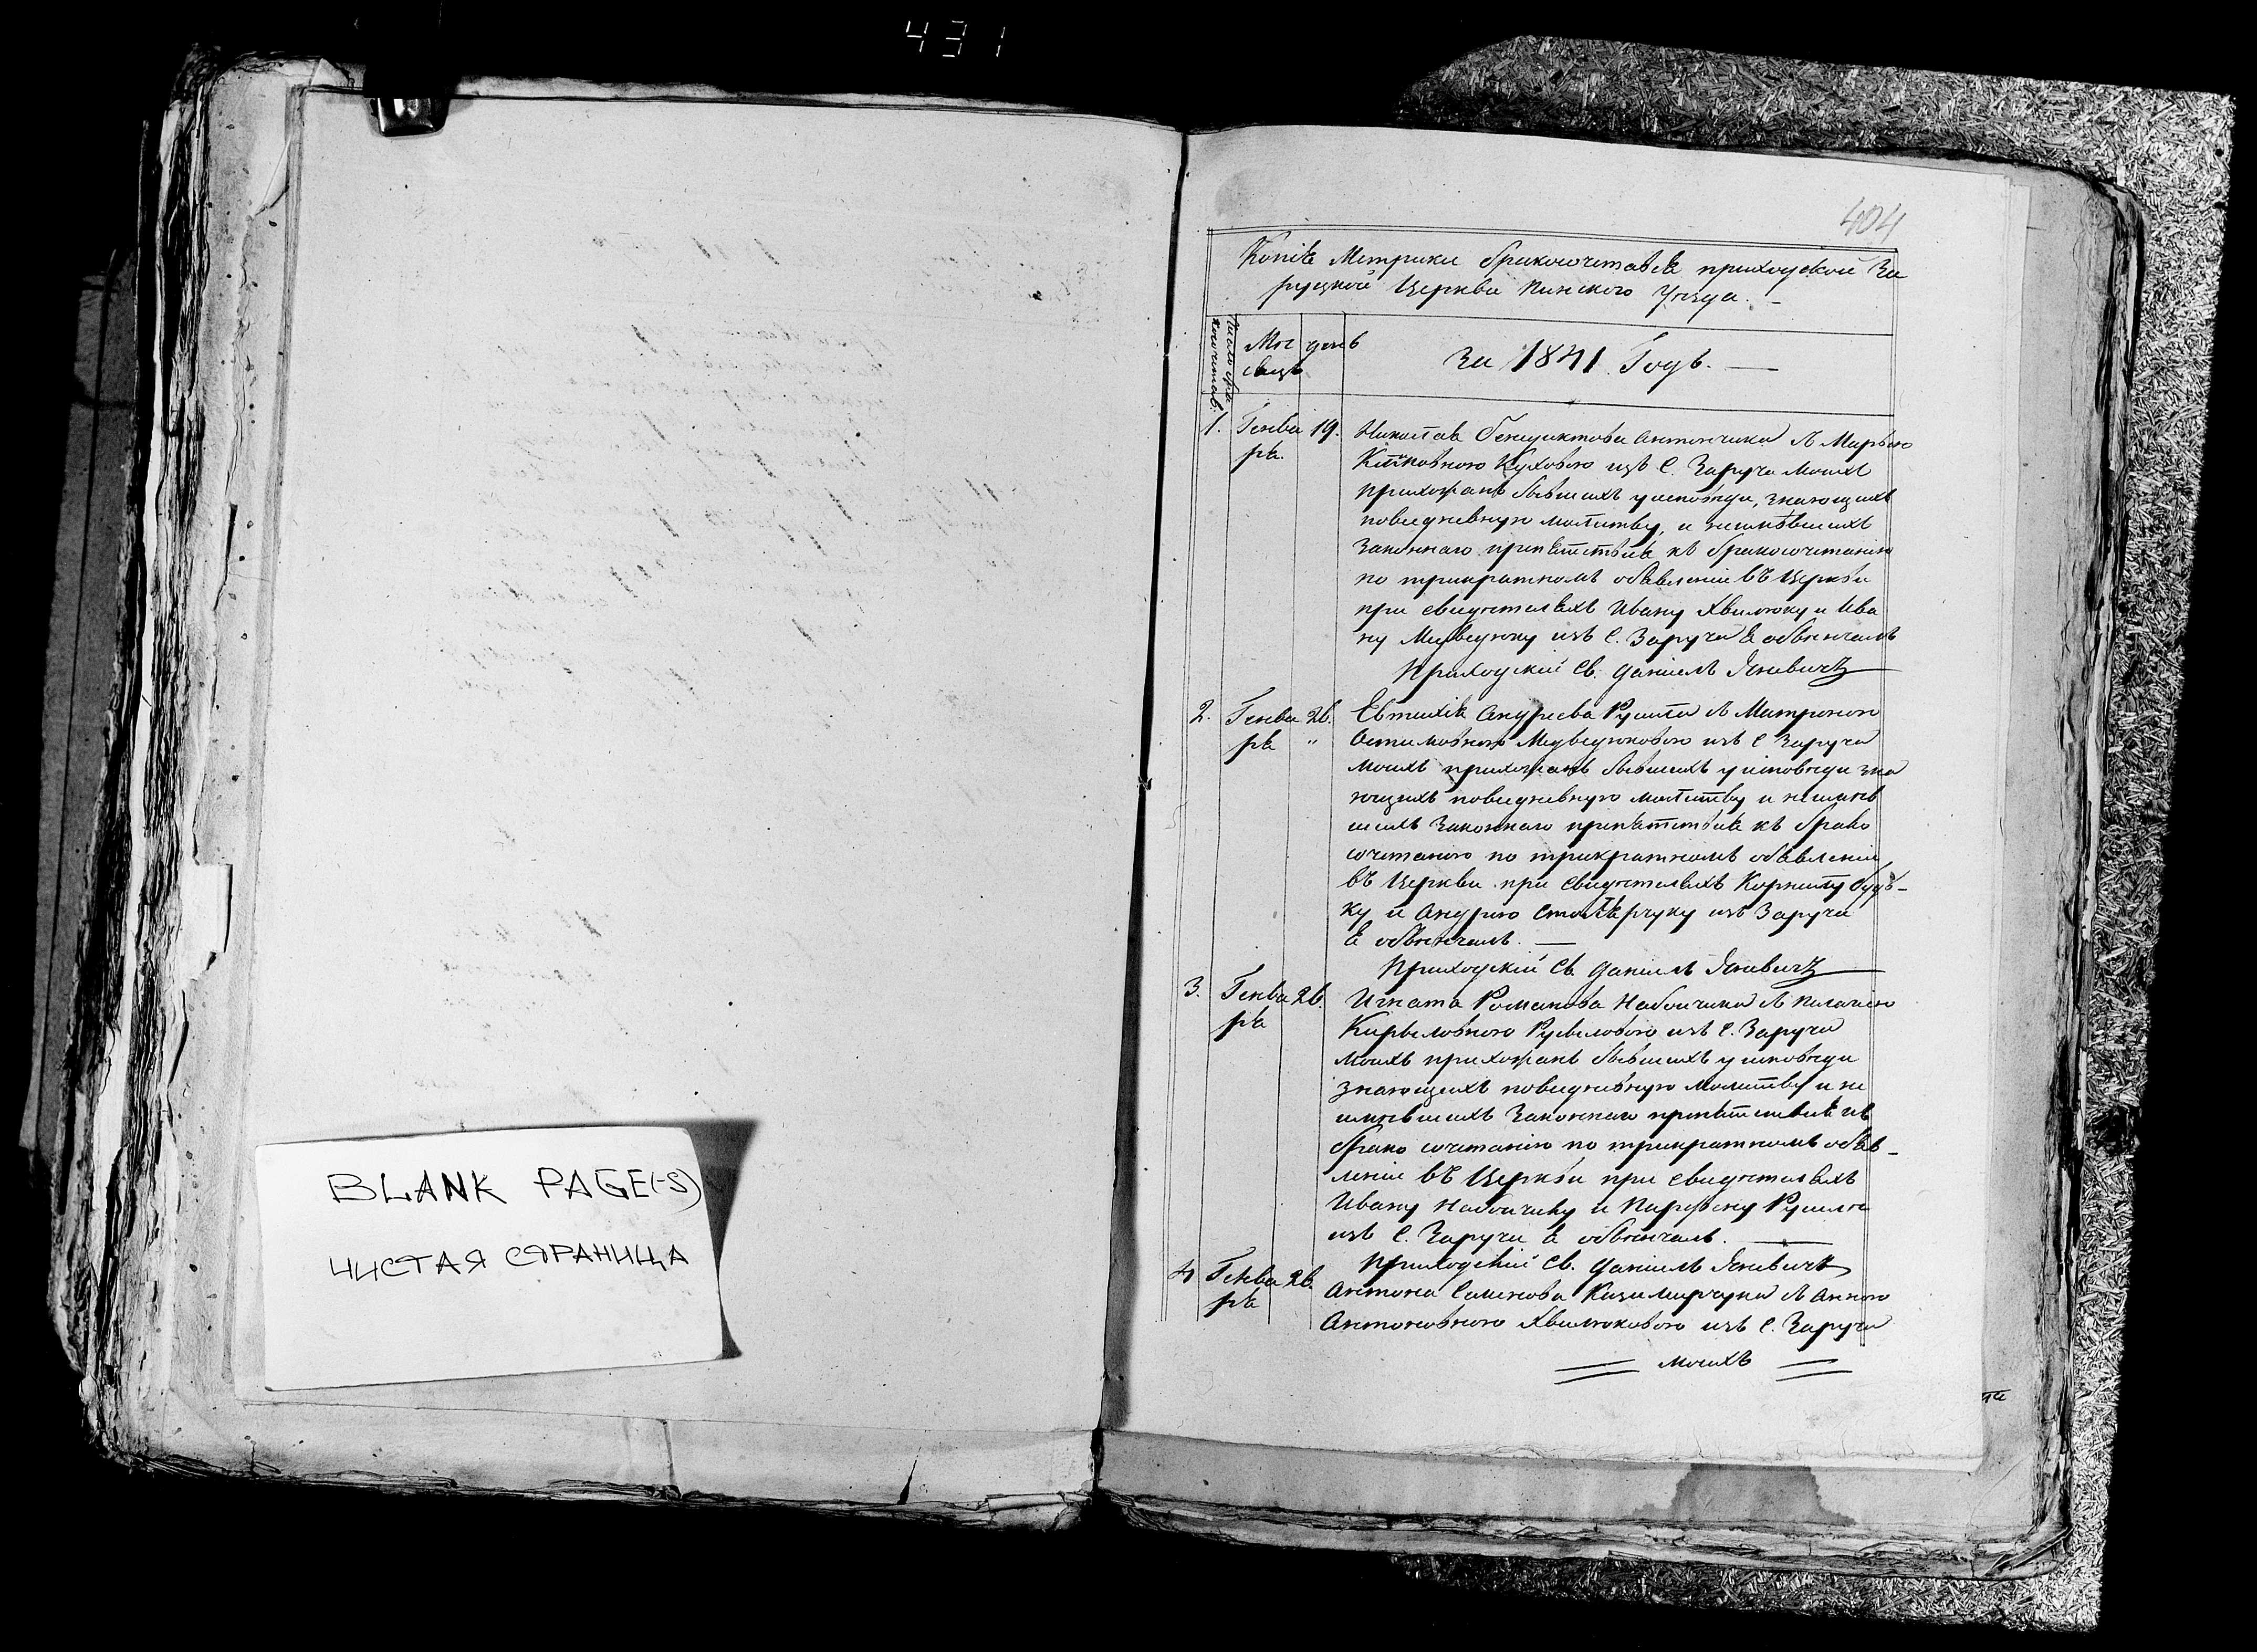 431
404
Копія Метрики бракосочетався приходской За
руцкой Церкви Пинского Уѣзда. -
Число бра
косочитав.
Мѣ день
сяцъ
За 1841 Годъ. —
1. Генва 19. Николая Бенедиктова Антончика съ Марьею
ря. Куховою изъ С. Заруча моихъ
прихожанъ бывшихъ у исповѣди, знающихъ
повседневную молитву, и неимѣвшихъ
Законнаго препятствія къ бракосочетанію
по трикратномъ обявленіи въ Церкви
при свидѣтеляхъ Ивану Хвилюку и Ива
ну Медведюку изъ С. Заруча я обвѣнчалъ
Приходскій Св. Даніилъ Яневичъ
2. Генва 26. Евтихія Андреева с Матроною
ря " Медведюковою изъ С Заруча
моихъ прихожанъ бывшихъ у исповѣди зна
ющихъ повседневную молитву и неимѣв
шихъ Законнаго препятствія къ брако
сочетанію по трикратномъ обявленіи
въ Церкви при свидѣтеляхъ Корнилу
ку и Андрею Столярчуку изъ Заруча
я обвѣнчалъ. —
Приходскій Св Даніилъ Яневичъ
3. Генва 26. Игната Романова Набойчика с Пелагією
ря Кириловною изъ С. Заруча
моихъ прихожанъ бывшихъ у исповѣди
знающихъ повседневную молитву и не
имѣвшихъ Законнаго препятствія къ
брако сочетанію по трикратномъ обяв-
леніи въ Церкви при свидѣтеляхъ
Ивану Набойчику и Парфену
изъ С. Заруча я обвѣнчалъ. —
Приходскій Св. Даніилъ Яневичъ
4 Генва 26. Антона Семенова Казимирчука с Анною
ря Антоновною Хвилюковою изъ С. Заруча
моихъ
BLANK PAGE(-S)
ЧИСТАЯ СТРАНИЦА